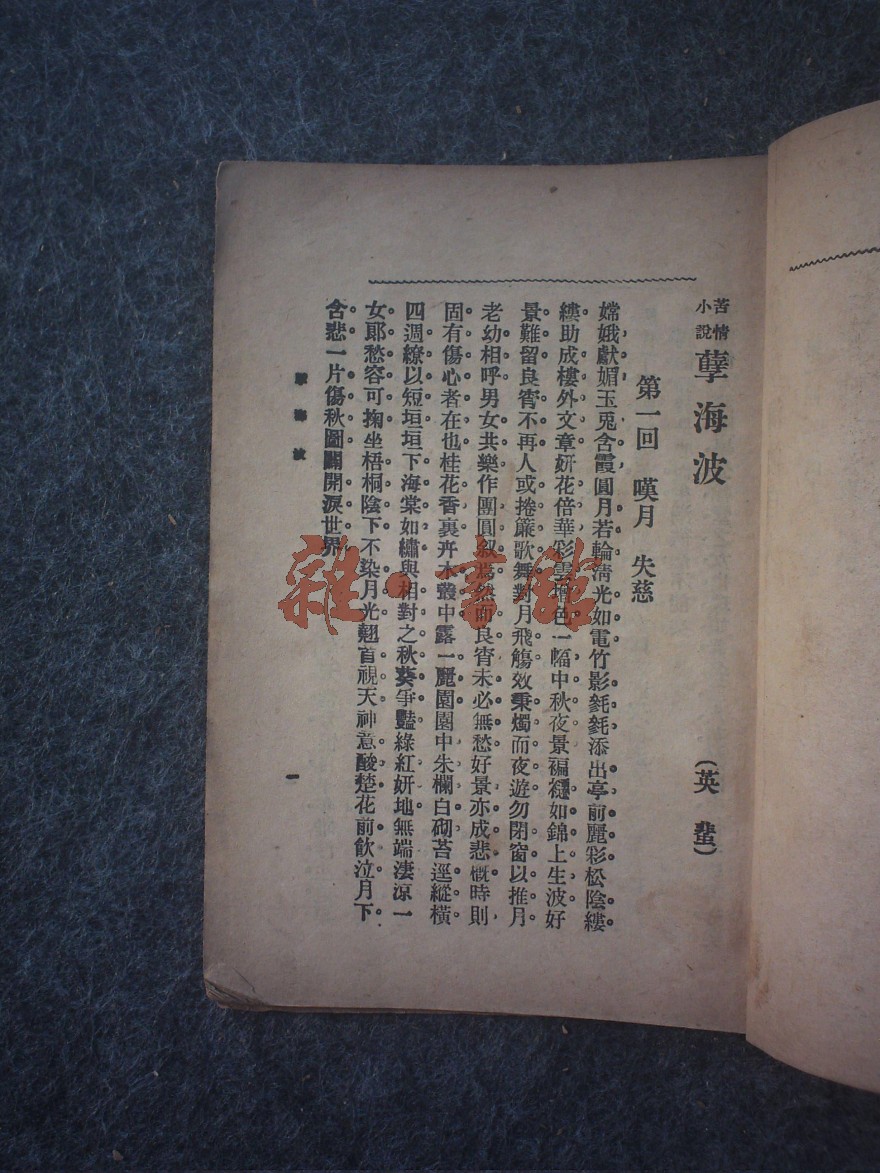 苦情
小說
孽海波
(英蜚)
第一回 嘆月 失慈
嫦娥獻媚玉兎含霞圓月若輪淸光如電竹影毿毿添出亭前麗彩松陰縷
縷助成樓外文章妍花倍華彩雲增色一幅中秋夜景褊如錦上生波好
景難留良宵不再人或捲簾歌舞對月飛觴效秉燭而夜遊勿閉窗以推月
老幼相呼男女共樂作團圓叙焉然而良宵未必無愁好景亦成悲慨時則
固有傷心者在也桂花香裏卉木叢中露一麗園園中朱欄白砌苔逕縱橫
四週繚以短垣垣下海棠如繡與相對之秋葵爭豔綠紅妍地無端淒凉一
女郞愁容可掬坐梧桐陰下不染月光翹首視天神意酸楚花前飮泣月下
含悲一片傷秋圖闢開淚世界
孽海波
一
雜·書館